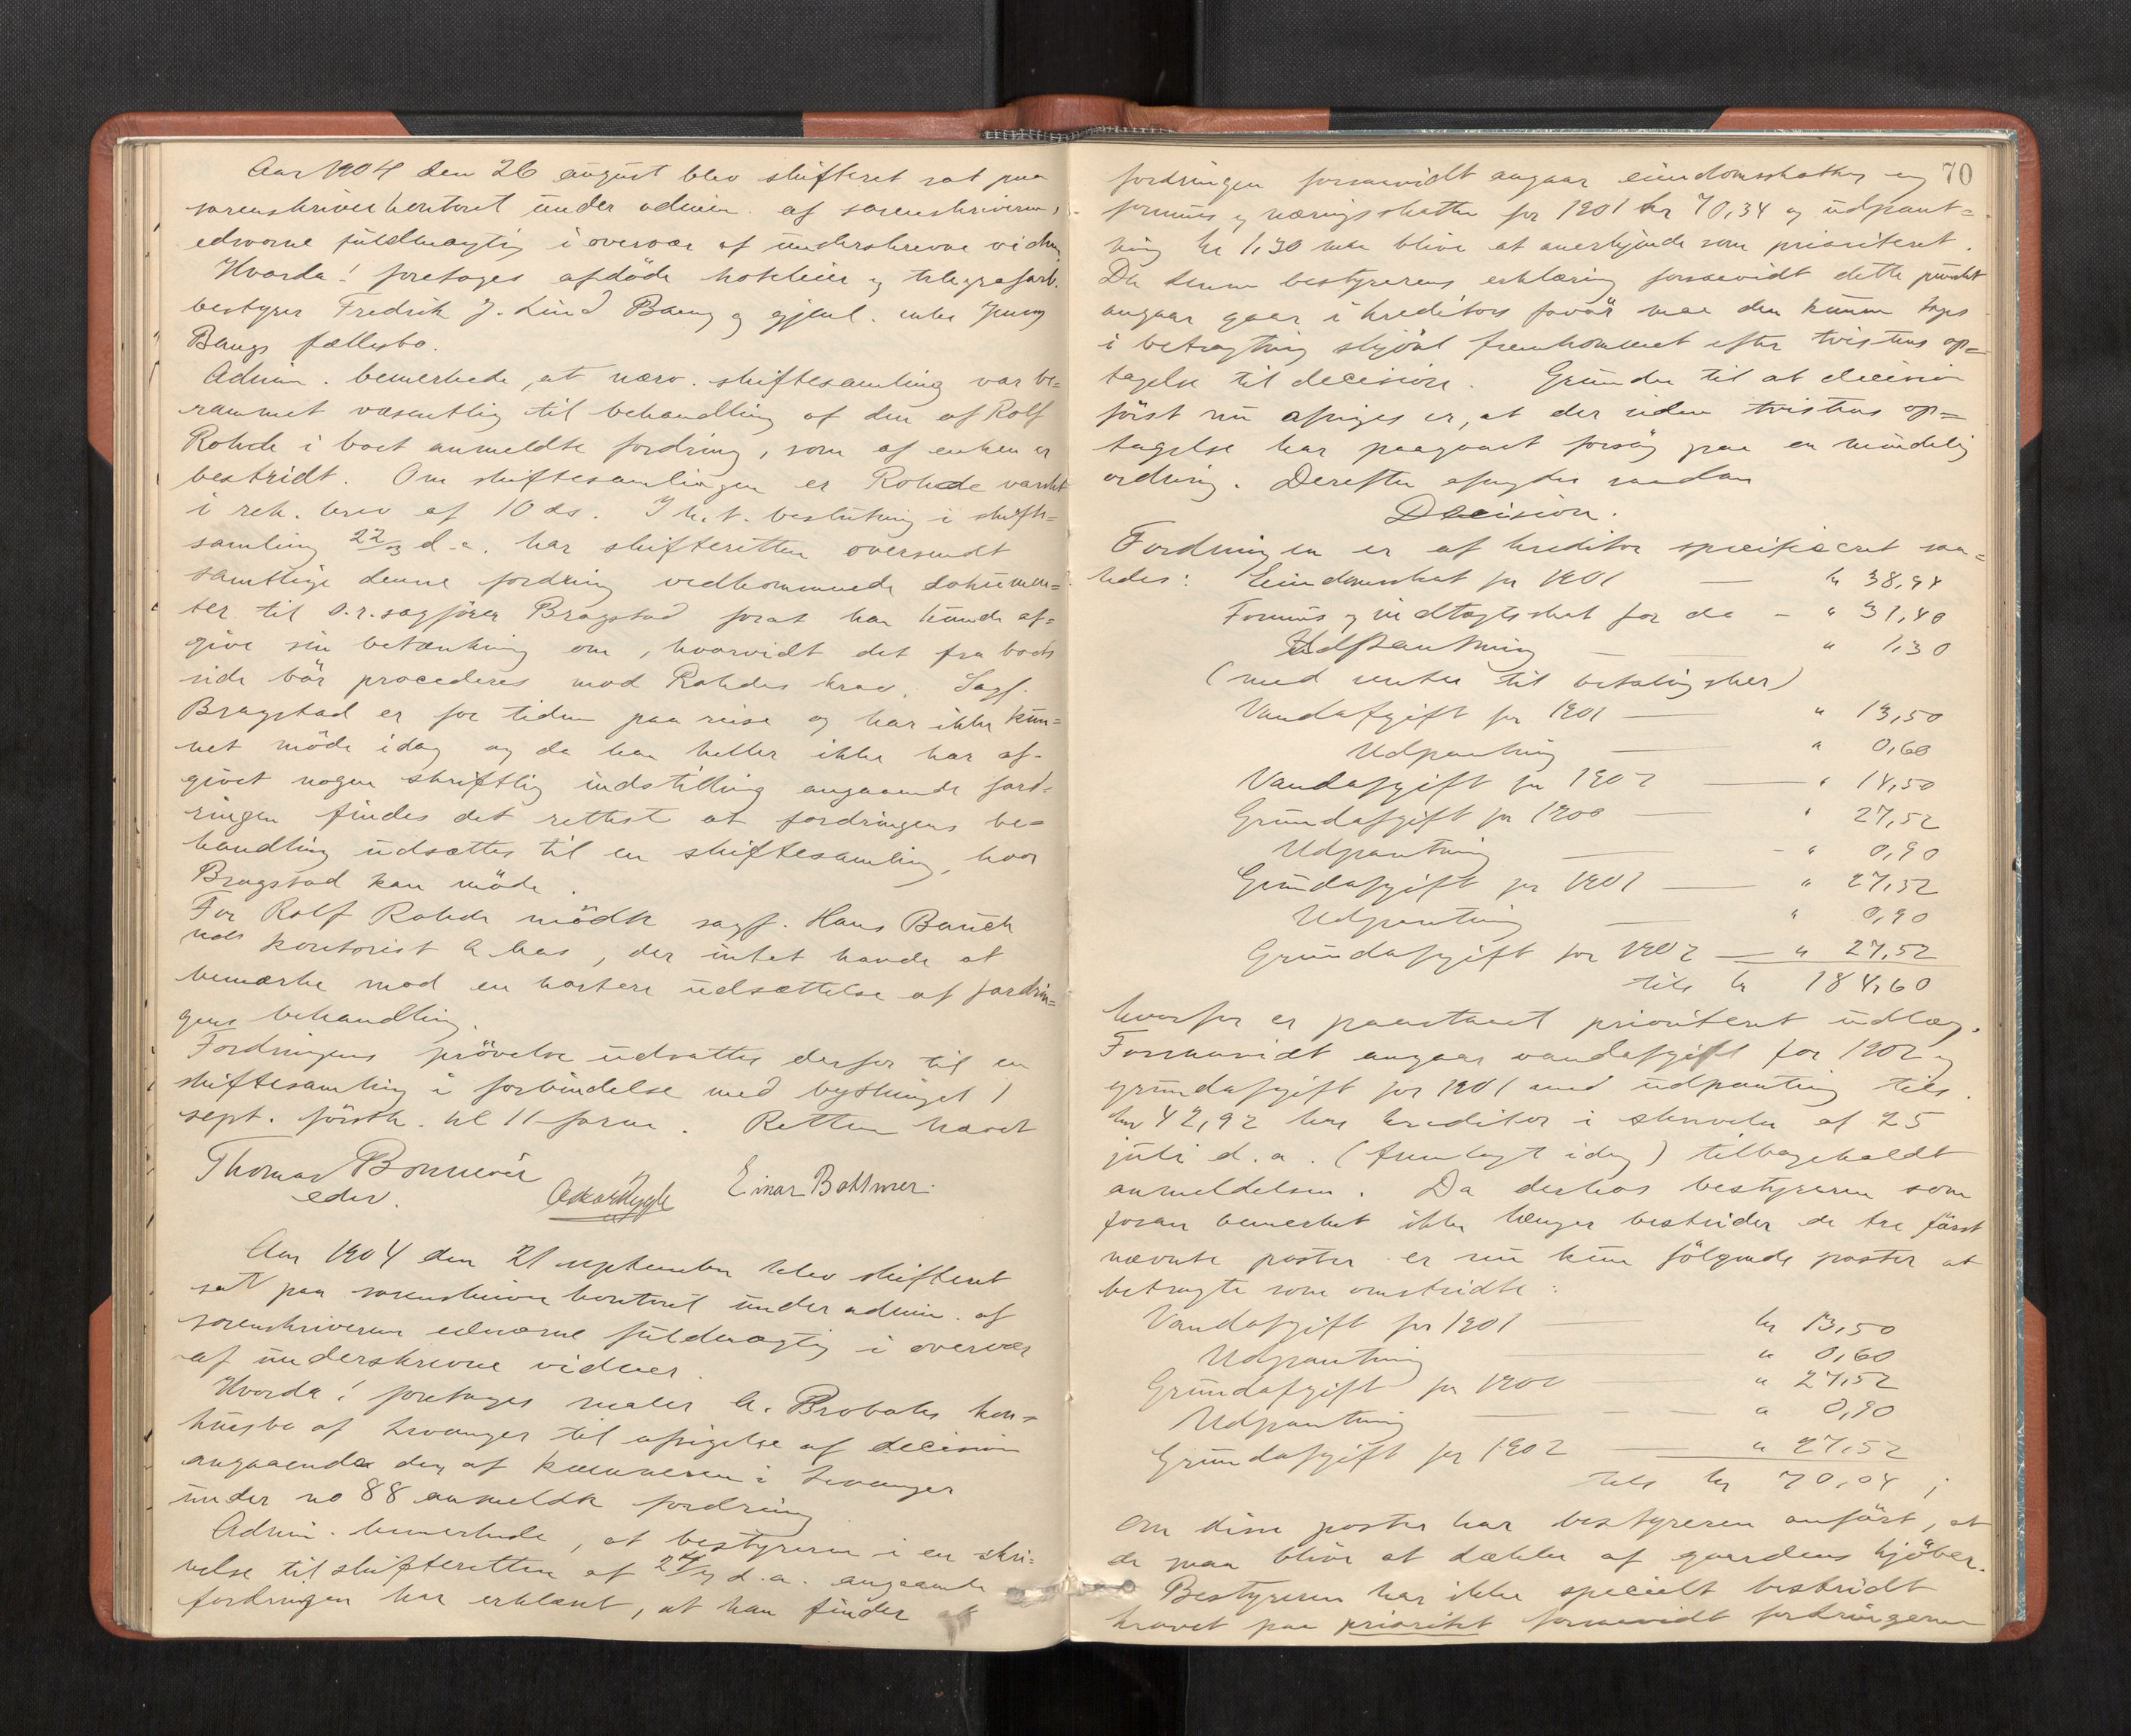 Aar 1904 den 26 august blev skifteret sat paa
sorenskriverkontoret under admin. af sorenskriverens
edsvorne fuldmægtig i overvær af underskrevne vidner
Hvorda! foretages afdöde hoteleier og telegrafsta.
bestyrer Fredrik J. Lind Bang og gjenl. enke Jenny
Bangs fællesbo.
Admin. bemerkede, at nærv. skiftesamling var be=
rammet væsentlig til behandling af den af Rolf
Rohde i boet anmeldte fordring, som af enken er
bestridt. Om skiftesamlingen er Rohde varslet
i rek. brev af 10 ds. I h.t. beslutning i skifte=
samling 22/3 d.a. har skifteretten oversendt
samtlige denne fordring vedkommende dokumen=
ter til o.r.sagförer Bragstad forat han kunde af=
give sin betænkning om, hvorvidt det fra boets
side bör procederes mod Rohdes krav. Sagf.
Bragstad er for tiden paa reise og har ikke kun=
net möde idag og da han heller ikke har af-
givet nogen skriftlig indstilling angaaende ford=
ringen findes det rettest at fordringens be=
handling udsættes til en skiftesamling, hvor
Bragstad kan möde.
For Rolf Rohde mödte sagf. Hans Bauck
ved kontorist Aas, der intet havde at
bemærke mod en kortere udsættelse af fordrin=
gens behandling.
Fordringens prövelse udsattes derfor til en
skiftesamling i forbindelse med bythinget 1
sept. förstk. kl 11 form. Retten hævet
Thomas Bonnevie
edsv. Einar Bothner.
Aar 1904 den 21 september blev skifteret
sat paa sorenskriverkontoret under admin. af
sorenskriverens edsvorne fuldmægtig i overvær
af underskrevne vidner.
Hvorda! foretages maler A. Brobaks kon=
kursbo af Levanger til afsigelse af decision
angaaende den af kæmneren i Levanger
under no 88 anmeldte fordring
Admin. bemerkede, at bestyreren i en skri=
velse til skifteretten af d.a. angaaende
fordringen har erklært, at han finder at
70
fordringen forsaavidt angaar eiendomsskatten og
formues og næringsskatten for 1901 kr 70,34 og udpant=
ning kr 1,30 maa blive at anerkjende som prioriteret.
Da denne bestyrerens erklæring forsaavidt dette punkt
angaar gaar i kreditors favör maa den kunne tages
i betragtning skjönt fremkommet efter tvistens op=
tagelse til decision. Grunden til at decision
först nu afsiges er, at der siden tvistens op=
tagelse har paagaaet forsög paa en mindelig
ordning. Derefter afsagdes saadan
Decision.
Fordringen er af kreditor specificeret saa=
ledes: Eiendomsskat for 1901 — kr 38,94
Formues og indtægtsskat for do — " 31,40
Udpantning — " 1,30
(med renter til betaling sker)
Vandafgift for 1901 — " 13,50
Udpantning — " 0,60
Vandafgift for 1902 — " 14,50
Grundafgift for 1900 — " 27,52
Udpantning — " 0,90
Grundafgift for 1901 — " 27,52
Udpantning — " 0,90
Grundafgift for 1902 — " 27,52
tils kr 184,60
hvorfor er paastaaet prioriteret udlæg.
Forsaavidt angaar vandafgift for 1902 og
grundafgift for 1901 med udpantning tils.
kr 42,92 har kreditor i skrivelse af 25
juli d.a. (fremlagt idag) tilbagekaldt
anmeldelsen. Da derhos bestyreren som
foran bemerket ikke længer bestrider de tre först
nævnte poster er nu kun fölgende poster at
betragte som omstridte:
Vandafgift for 1901 — kr 13,50
Udpantning — " 0,60
Grundafgift for 1900 — " 27,52
Udpantning — " 0,90
Grundafgift for 1902 — " 27,52
tils kr 70,04;
Om disse poster har bestyreren anfört, at
de maa blive at dække af gaardens kjöber.
Bestyreren har ikke specielt bestridt
kravet paa prioritet forsaavidt fordringerne